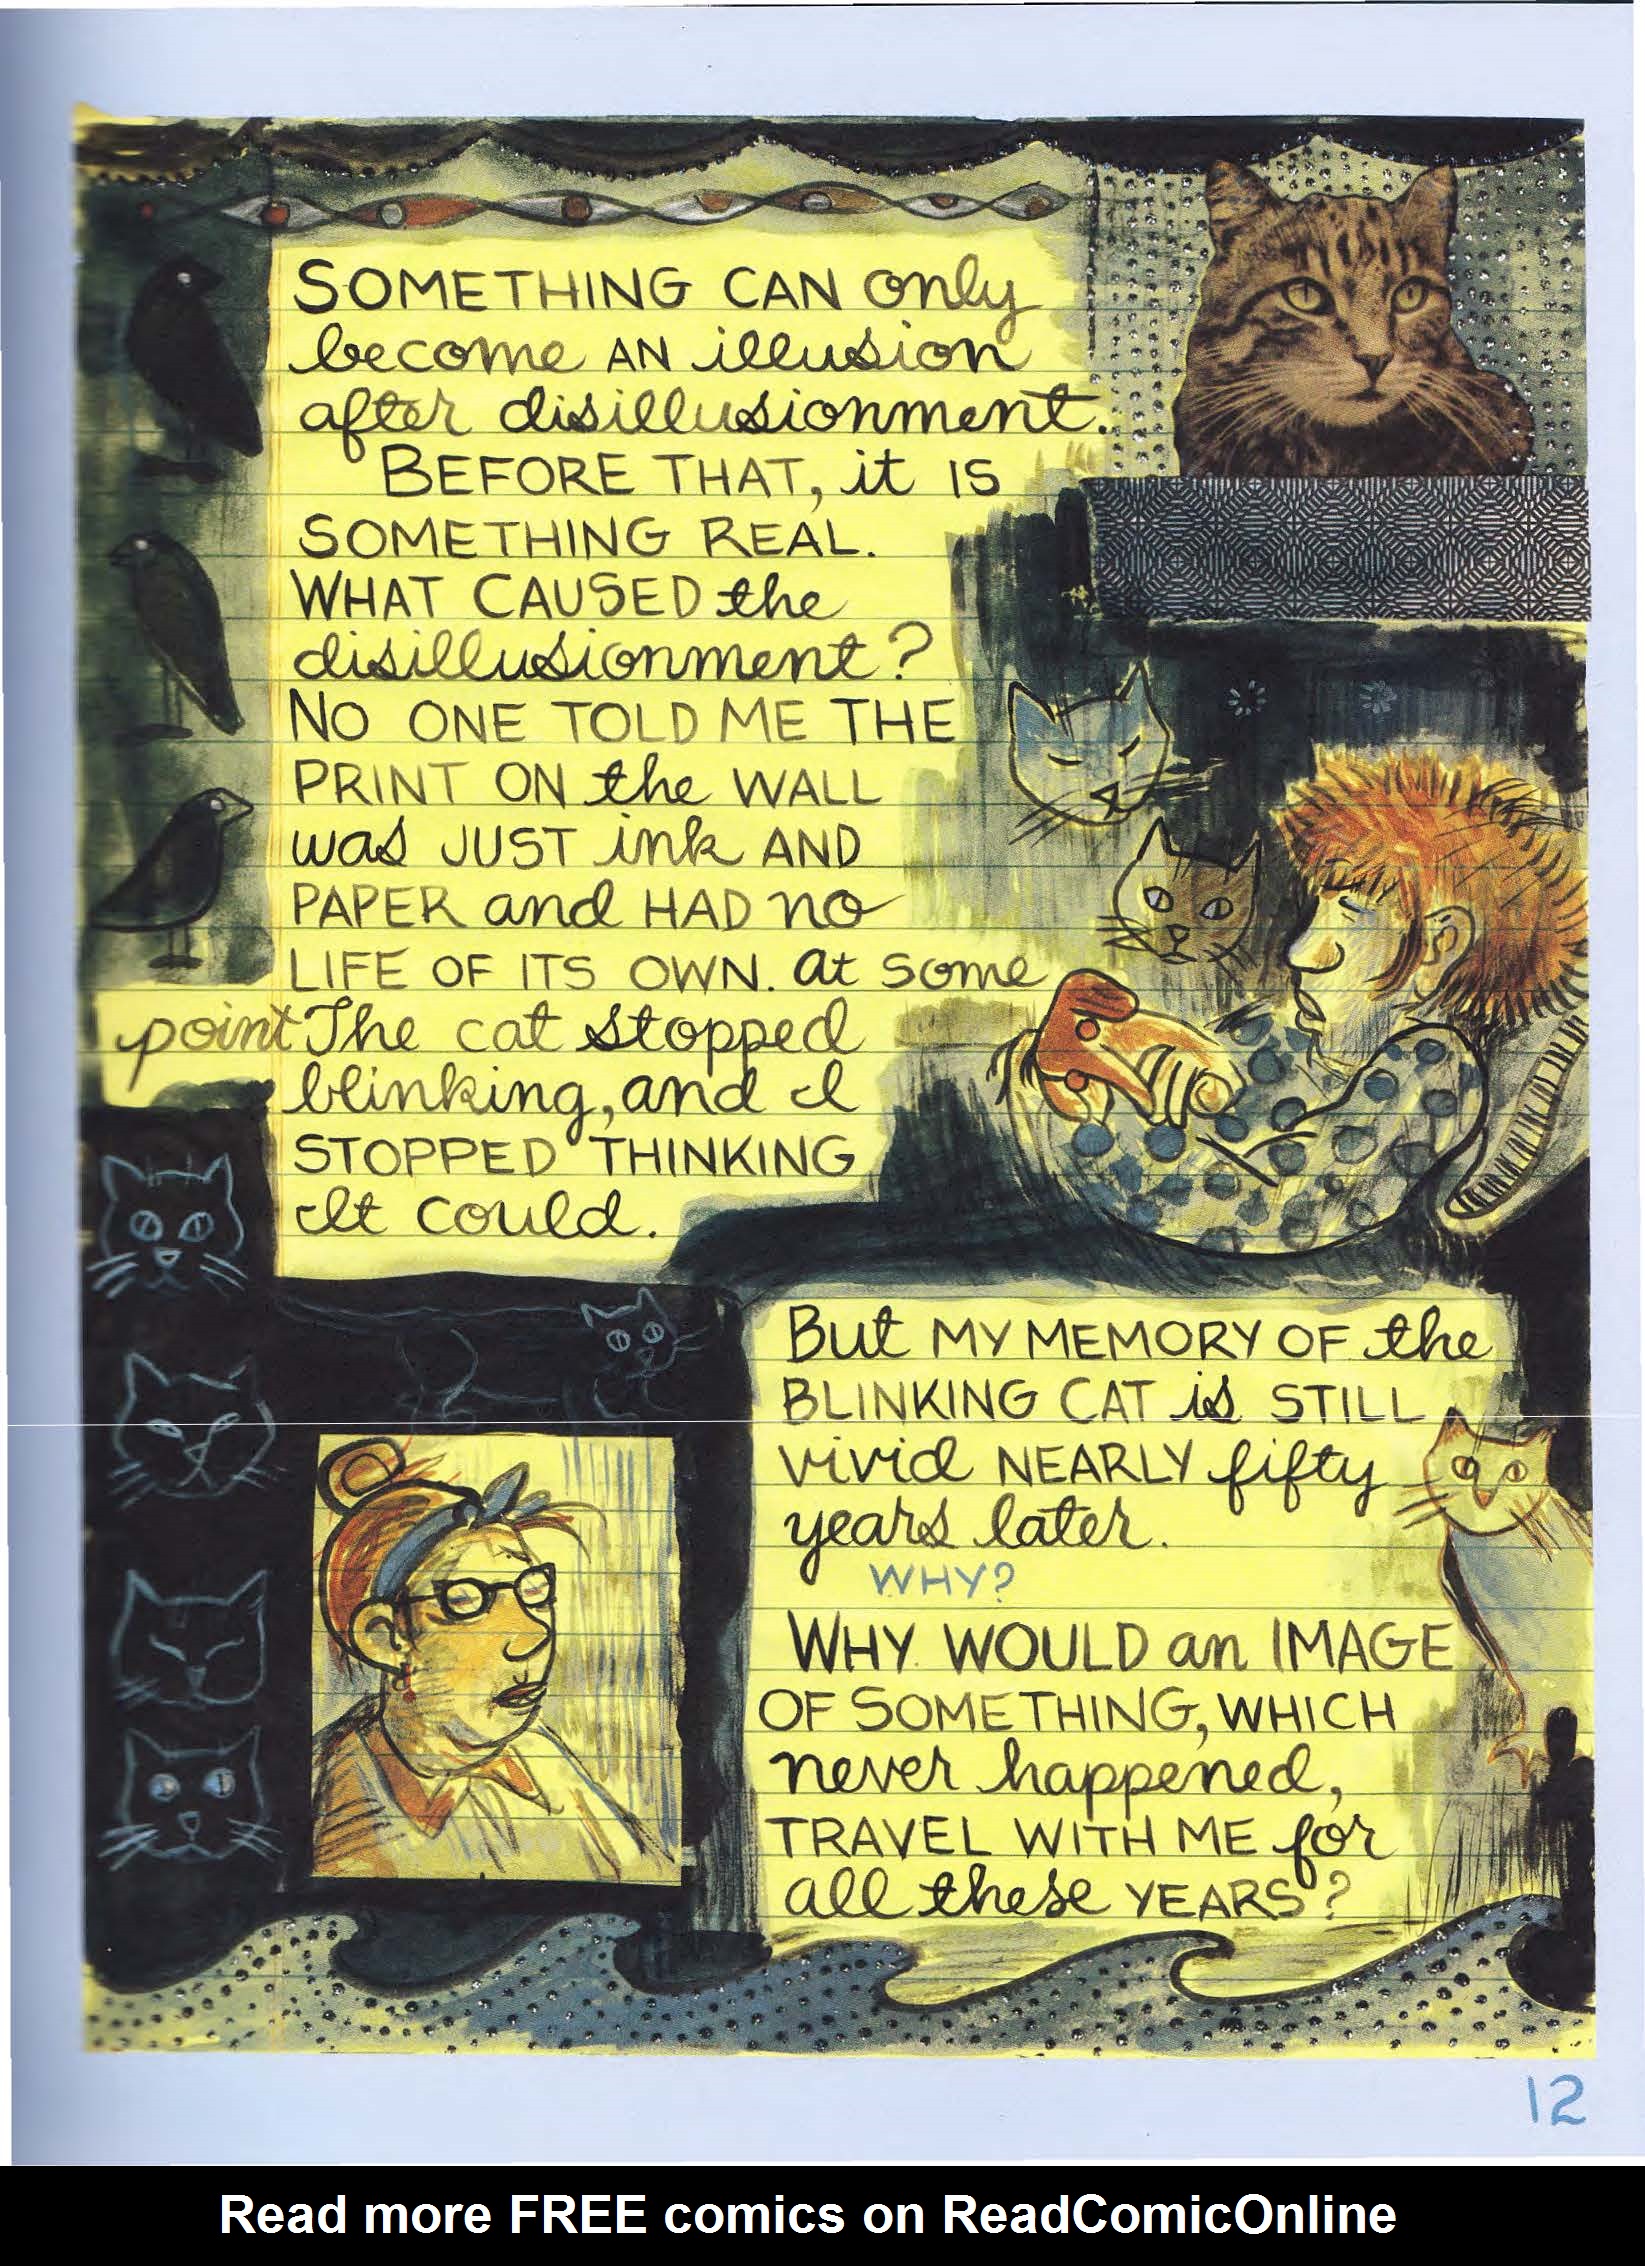 SOMETHING CAN only
become AN illusion
after disillusionment.
BEFORE THAT, it IS
SOMETHING REAL.
WHAT CAUSED the
disillusionment?
NO ONE TOLD ME THE
PRINT ON the WALL
was JUST ink AND
PAPER and HAD no
LIFE OF ITS OWN. at some
point The cat stopped
blinking, and I
STOPPED THINKING
It could.
But MY MEMORY OF the
BLINKING CAT is STILL
vivid NEARLY fifty
years later.
WHY?
WHY WOULD an IMAGE
OF SOMETHING, WHICH
never happened,
TRAVEL WITH ME for
all these YEARS?
12
Read more FREE comics on ReadComicOnline